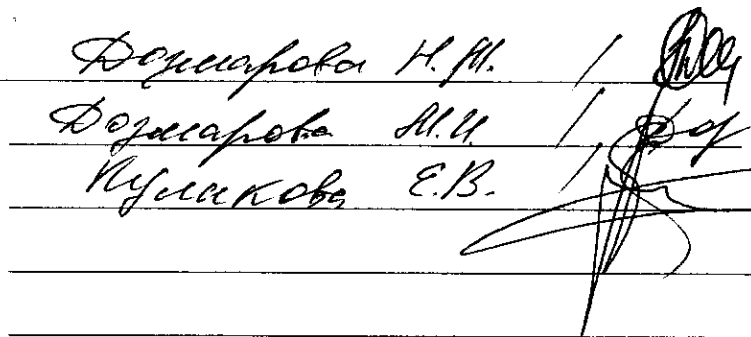 Дозмарова Н.М. /
Дозмарова М.И. /
Куликова Е.В. /